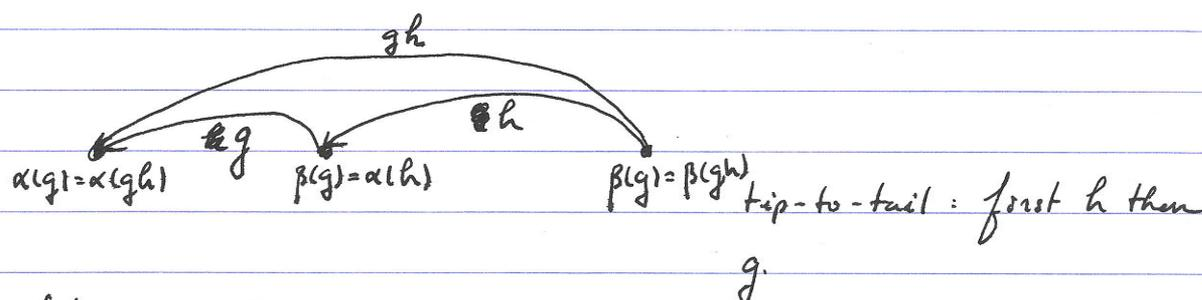 gh
g
h
α(g)=α(gh)
β(g)=α(h)
β(g)=β(gh)
tip-to-tail : first h then
g.